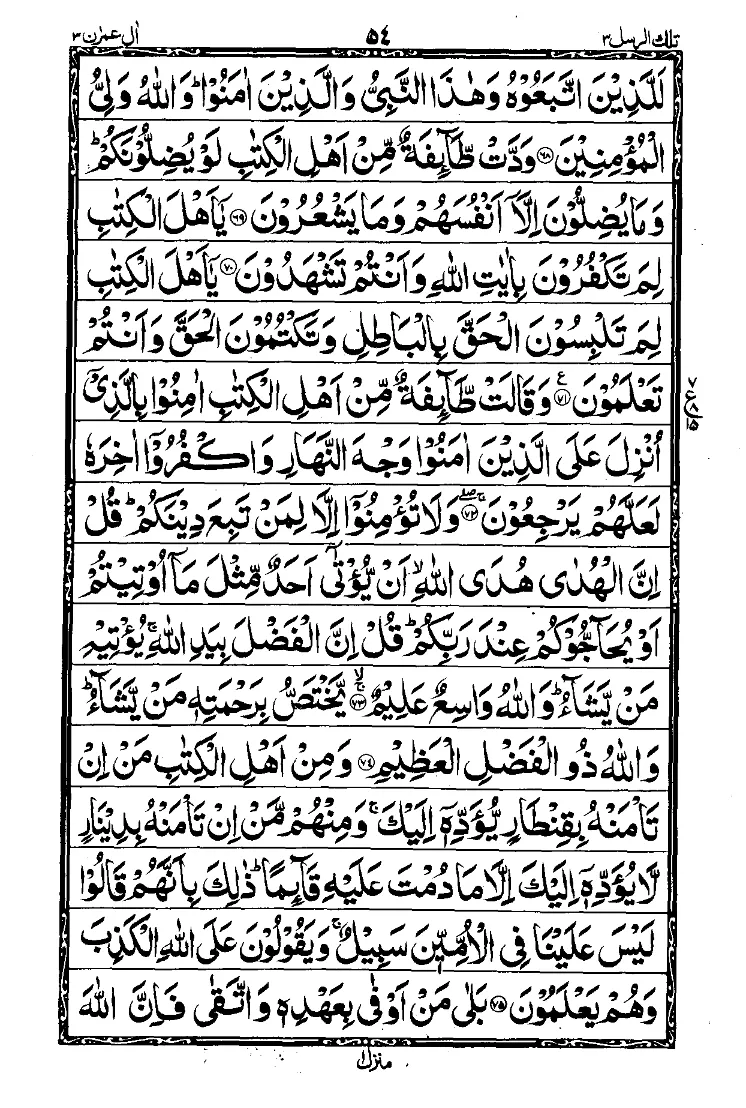 تلك الرسل ٣ ٥٤ اٰل عمرٰن ٣
لَلَّذِيْنَ اتَّبَعُوْهُ وَهٰذَا النَّبِىُّ وَالَّذِيْنَ اٰمَنُوْا ؕ وَاللّٰهُ وَلِىُّ
الْمُؤْمِنِيْنَ ﴿۶۸﴾ وَدَّتْ طَّآئِفَةٌ مِّنْ اَهْلِ الْكِتٰبِ لَوْ يُضِلُّوْنَكُمْ ؕ
وَمَا يُضِلُّوْنَ اِلَّاۤ اَنْفُسَهُمْ وَمَا يَشْعُرُوْنَ ﴿۶۹﴾ يٰۤاَهْلَ الْكِتٰبِ
لِمَ تَكْفُرُوْنَ بِاٰيٰتِ اللّٰهِ وَاَنْتُمْ تَشْهَدُوْنَ ﴿۷۰﴾ يٰۤاَهْلَ الْكِتٰبِ
لِمَ تَلْبِسُوْنَ الْحَقَّ بِالْبَاطِلِ وَتَكْتُمُوْنَ الْحَقَّ وَاَنْتُمْ
تَعْلَمُوْنَ ﴿۷۱﴾ ع وَقَالَتْ طَّآئِفَةٌ مِّنْ اَهْلِ الْكِتٰبِ اٰمِنُوْا بِالَّذِىْۤ
ع ٧ ٨ ١٥
اُنْزِلَ عَلَى الَّذِيْنَ اٰمَنُوْا وَجْهَ النَّهَارِ وَاكْفُرُوْۤا اٰخِرَهٗ
لَعَلَّهُمْ يَرْجِعُوْنَ ﴿۷۲﴾ ۚۖ وَلَا تُؤْمِنُوْۤا اِلَّا لِمَنْ تَبِعَ دِيْنَكُمْ ؕ قُلْ
اِنَّ الْهُدٰى هُدَى اللّٰهِ ۙ اَنْ يُّؤْتٰٓى اَحَدٌ مِّثْلَ مَاۤ اُوْتِيْتُمْ
اَوْ يُحَآجُّوْكُمْ عِنْدَ رَبِّكُمْ ؕ قُلْ اِنَّ الْفَضْلَ بِيَدِ اللّٰهِ ۚ يُؤْتِيْهِ
مَنْ يَّشَآءُ ؕ وَاللّٰهُ وَاسِعٌ عَلِيْمٌ ﴿۷۳﴾ ۚۙ يَّخْتَصُّ بِرَحْمَتِهٖ مَنْ يَّشَآءُ ؕ
وَاللّٰهُ ذُو الْفَضْلِ الْعَظِيْمِ ﴿۷۴﴾ وَمِنْ اَهْلِ الْكِتٰبِ مَنْ اِنْ
تَاْمَنْهُ بِقِنْطَارٍ يُّؤَدِّهٖۤ اِلَيْكَ ۚ وَمِنْهُمْ مَّنْ اِنْ تَاْمَنْهُ بِدِيْنَارٍ
لَّا يُؤَدِّهٖۤ اِلَيْكَ اِلَّا مَا دُمْتَ عَلَيْهِ قَآئِمًا ؕ ذٰلِكَ بِاَنَّهُمْ قَالُوْا
لَيْسَ عَلَيْنَا فِى الْاُمِّيّٖنَ سَبِيْلٌ ۚ وَيَقُوْلُوْنَ عَلَى اللّٰهِ الْكَذِبَ
وَهُمْ يَعْلَمُوْنَ ﴿۷۵﴾ بَلٰى مَنْ اَوْفٰى بِعَهْدِهٖ وَاتَّقٰى فَاِنَّ اللّٰهَ
منزل ١